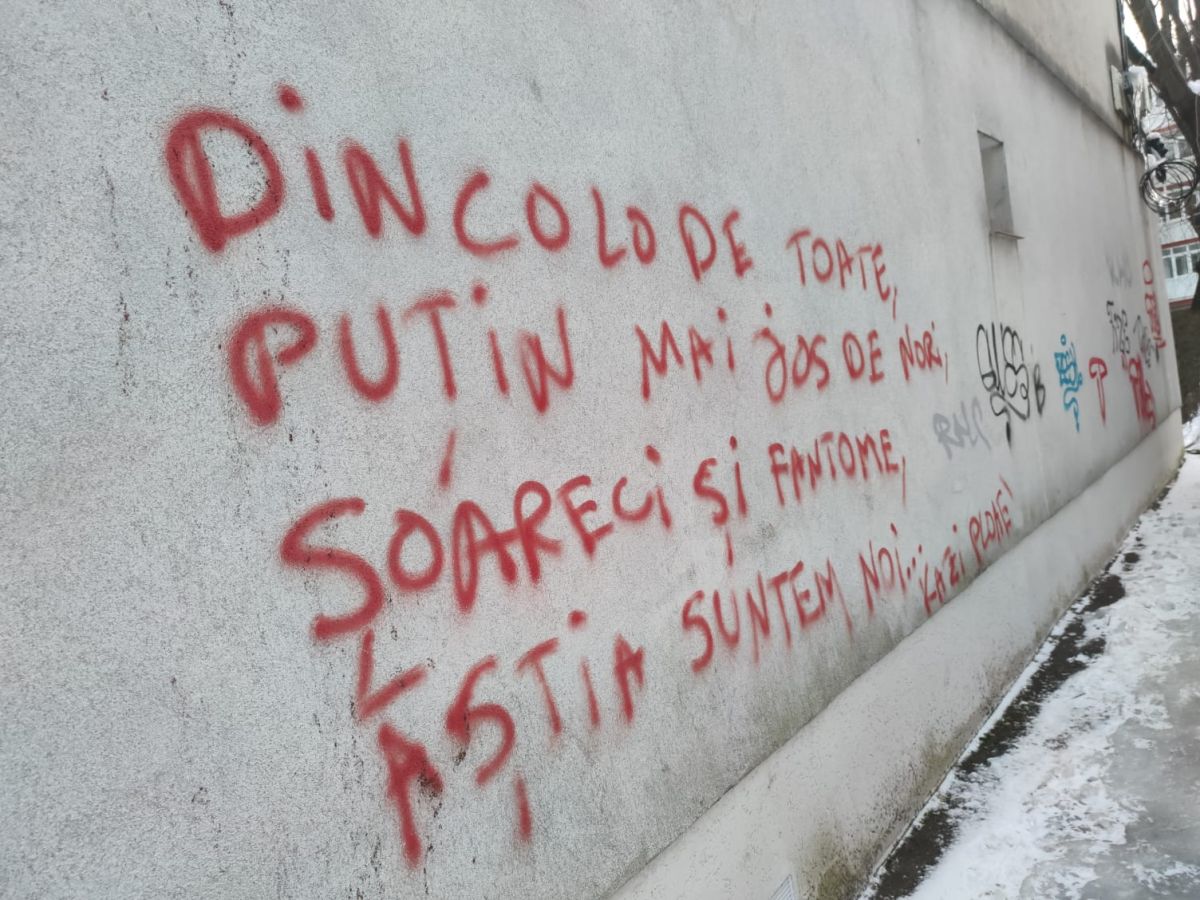 DINCOLO DE TOATE,
PUȚIN MAI JOS DE NORI,
ȘOARECI ȘI FANTOME,
ĂȘTIA SUNTEM NOI... KAZI PLOAIE!
RNC
B
P